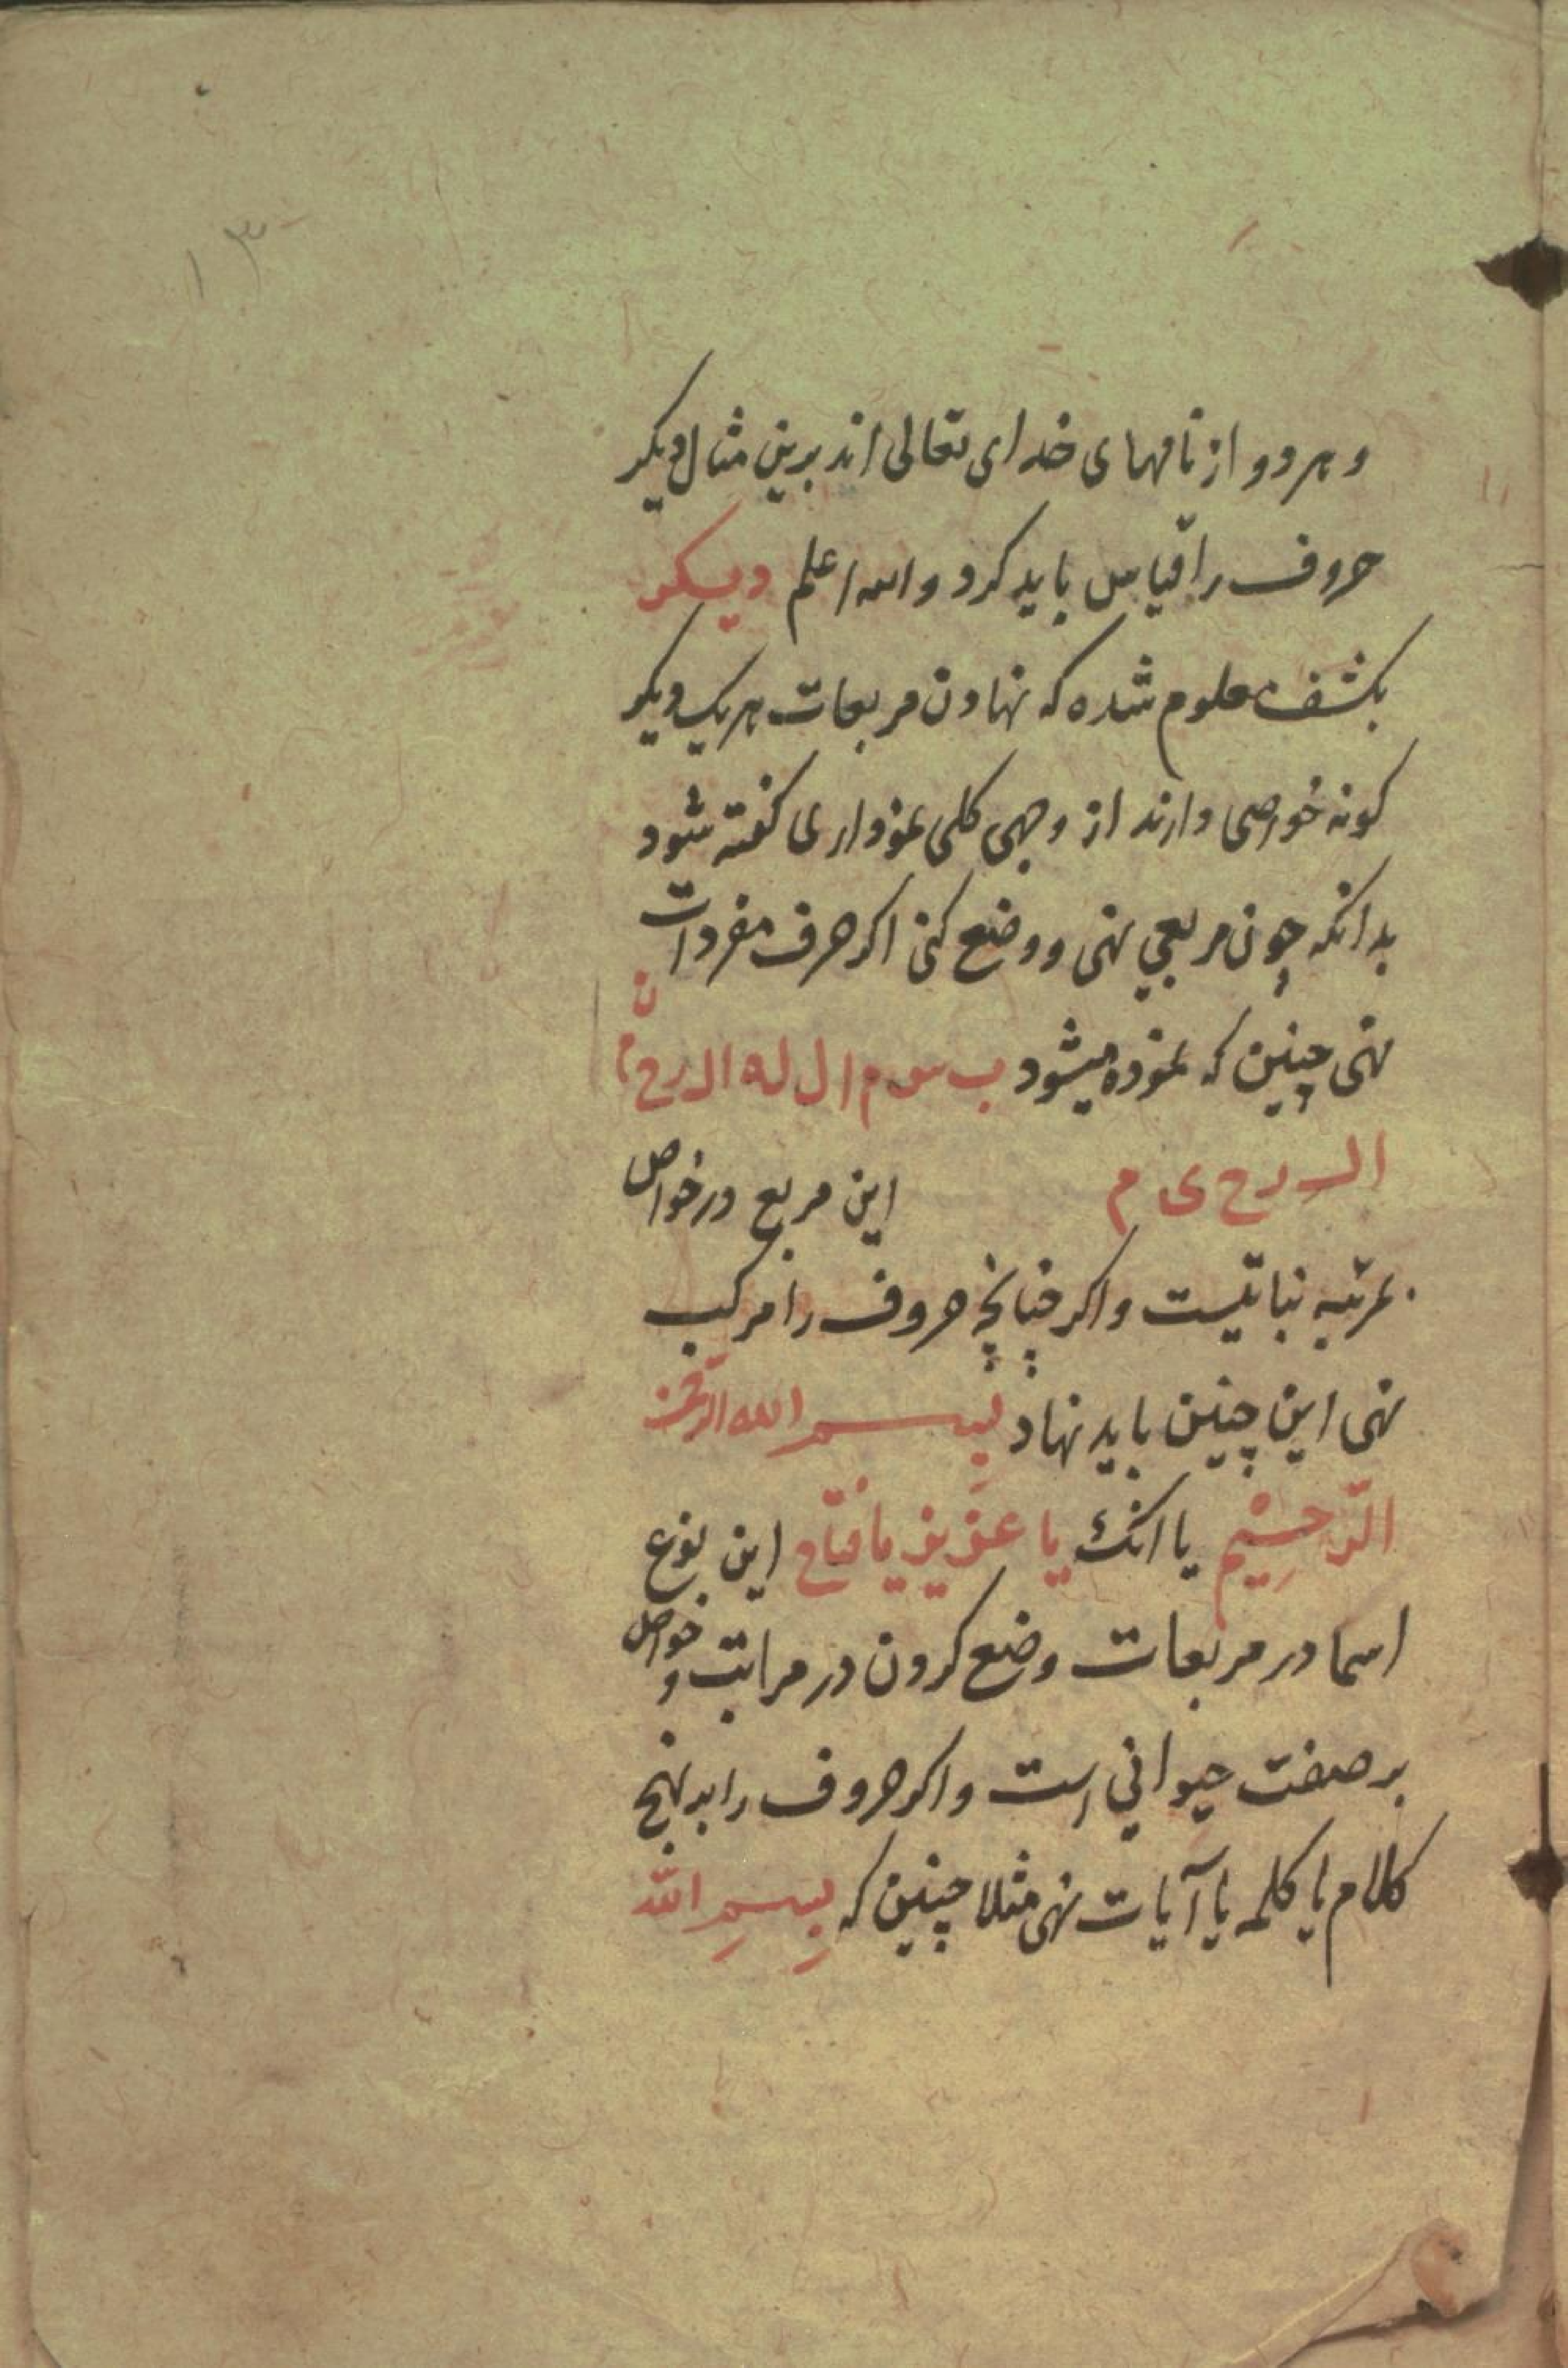 ١٣
و هر دو از نامهای خدای تعالی اند برین مثال دیکر
حروف را قیاس باید کرد والله اعلم دیکر
بکشف معلوم شده که نهادن مربعات هر یک دیکر
کونه خواصی دارند از وجهی کلی نموداری کفته شود
بدانکه چون مربعی نهی و وضع کنی اکر حرف مفردات
نهی چنین که نموده میشود ب س م ا ل ل ه ا ل ر ح م ن
ا ل ر ح ی م این مربع در خواص
بمرتبه نباتیست و اکر چنانچه حروف را مرکب
نهی این چنین باید نهاد بسم الله الرحمن
الرّحیم یا انک یا عزیز یا فتاح این نوع
اسما در مربعات وضع کردن در مراتب و خواص
بر صفت حیوانی است و اکر حروف را بر نهج
کلام یا کلمه یا آیات نهی مثلا چنین که بِسمِ اللّه